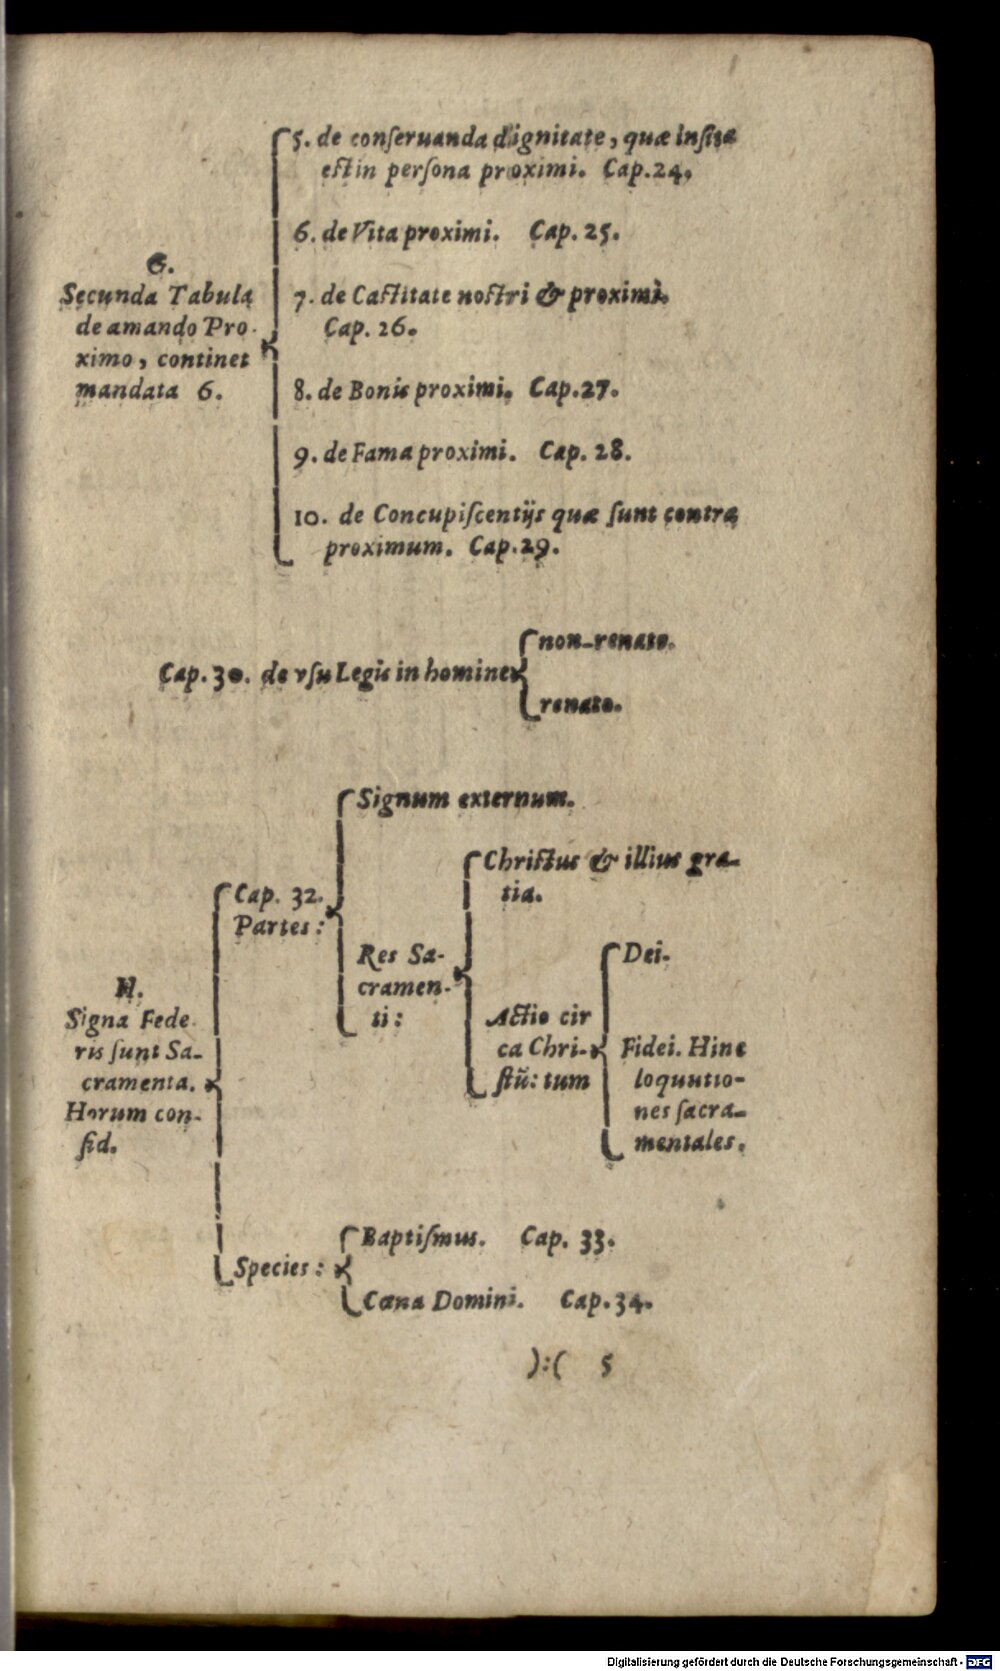 G.
Secunda Tabula
de amando Pro-
ximo, continet
mandata 6.
5. de conſeruanda dignitate, quæ inſita
eſt in perſona proximi. Cap. 24.
6. de Vita proximi. Cap. 25.
7. de Caſtitate noſtri & proximi.
Cap. 26.
8. de Bonis proximi. Cap. 27.
9. de Fama proximi. Cap. 28.
10. de Concupiſcentijs quæ ſunt contra
proximum. Cap. 29.
Cap. 30. de vſu Legis in homine
non-renato.
renato.
H.
Signa Fede
ris ſunt Sa-
cramenta.
Horum con-
ſid.
Cap. 32.
Partes:
Signum externum.
Res Sa-
cramen-
ti:
Chriſtus & illius gra-
tia.
Actio cir
ca Chri-
ſtū: tum
Dei.
Fidei. Hinc
loquutio-
nes ſacra-
mentales.
Species:
Baptiſmus. Cap. 33.
Cœna Domini. Cap. 34.
):( 5
Digitalisierung gefördert durch die Deutsche Forschungsgemeinschaft - DFG